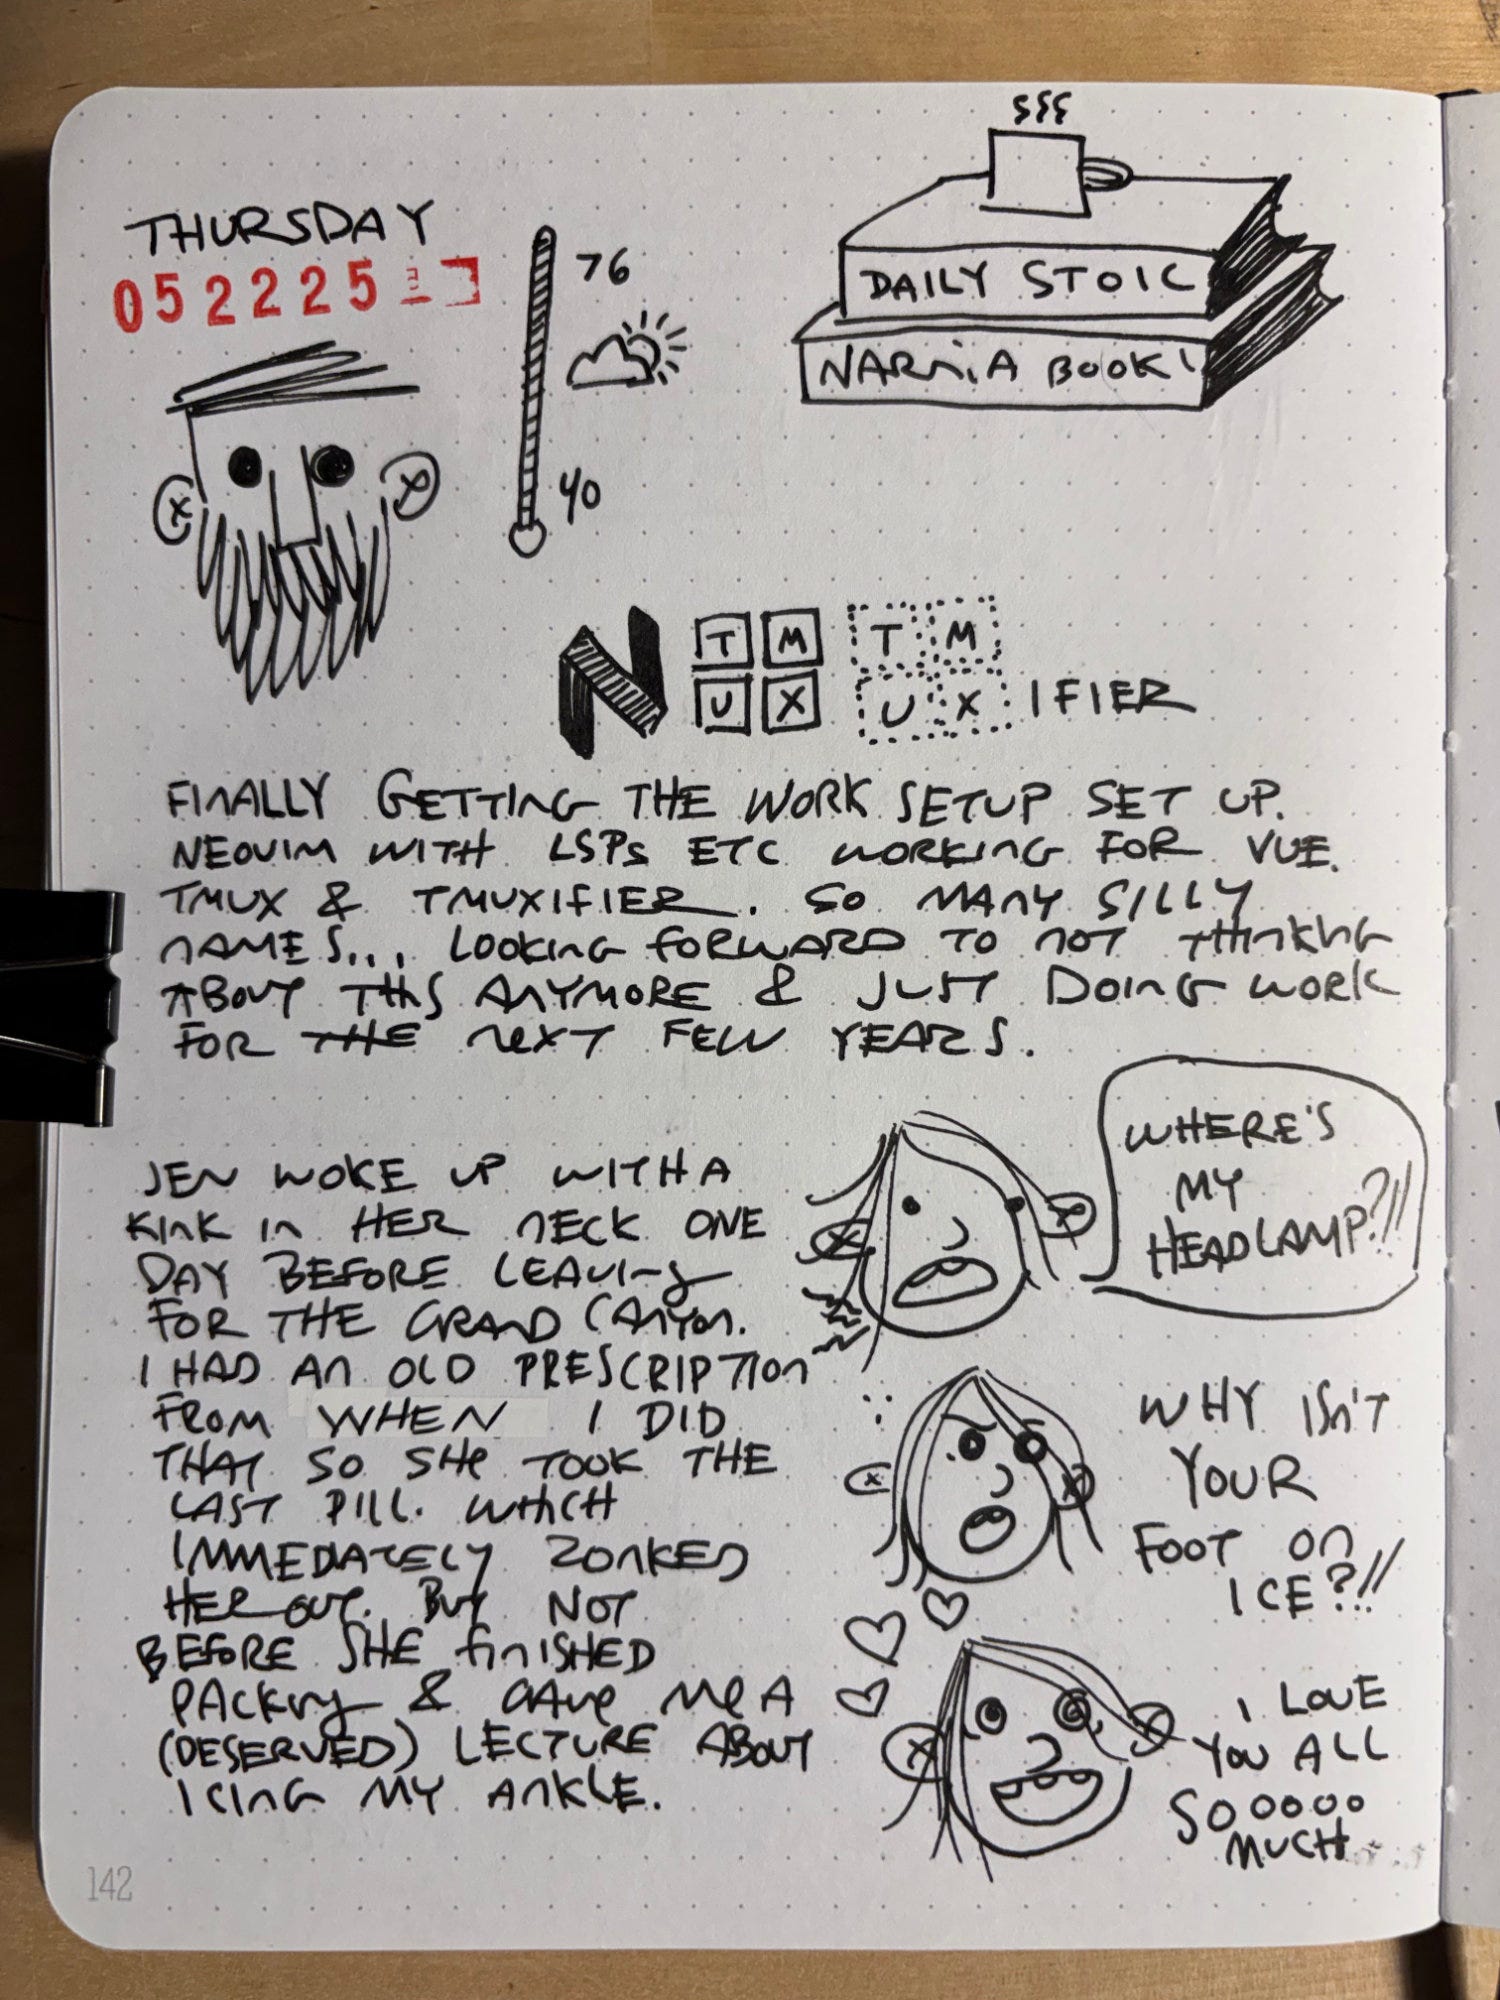 THURSDAY
052225
76
40
DAILY STOIC
NARNIA BOOK!
N TM UX TM UX IFIER
FINALLY GETTING THE WORK SETUP SET UP.
NEOVIM WITH LSPs ETC WORKING FOR VUE.
TMUX & TMUXIFIER. SO MANY SILLY
NAMES... LOOKING FORWARD TO NOT THINKING
ABOUT THIS ANYMORE & JUST DOING WORK
FOR THE NEXT FEW YEARS.
JEN WOKE UP WITH A
KINK IN HER NECK ONE
DAY BEFORE LEAVING
FOR THE GRAND CANYON.
I HAD AN OLD PRESCRIPTION
FROM WHEN I DID
THAT SO SHE TOOK THE
LAST PILL. WHICH
IMMEDIATELY ZONKED
HER OUT. BUT NOT
BEFORE SHE FINISHED
PACKING & GAVE ME A
(DESERVED) LECTURE ABOUT
ICING MY ANKLE.
WHERE'S
MY
HEADLAMP?!!
WHY ISN'T
YOUR
FOOT ON
ICE?!!
I LOVE
YOU ALL
SOOOOO
MUCH
142